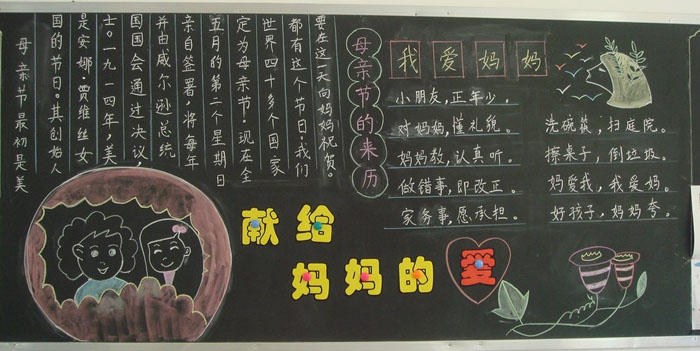 母亲节的来历
母亲节最初是美
国的节日。其创始人
是安娜·贾维丝女
士。一九一四年，美
国国会通过决议，
并由威尔逊总统
亲自签署，将每年
五月的第二个星期日
定为母亲节。现在全
世界四十多个国家
都有这个节日。我们
要在这一天向妈妈祝贺。
我爱妈妈
小朋友，正年少，
对妈妈，懂礼貌。
妈妈教，认真听。
做错事，即改正。
家务事，愿承担。
洗碗筷，扫庭院。
擦桌子，倒垃圾。
妈爱我，我爱妈。
好孩子，妈妈夸。
献给
妈妈的爱